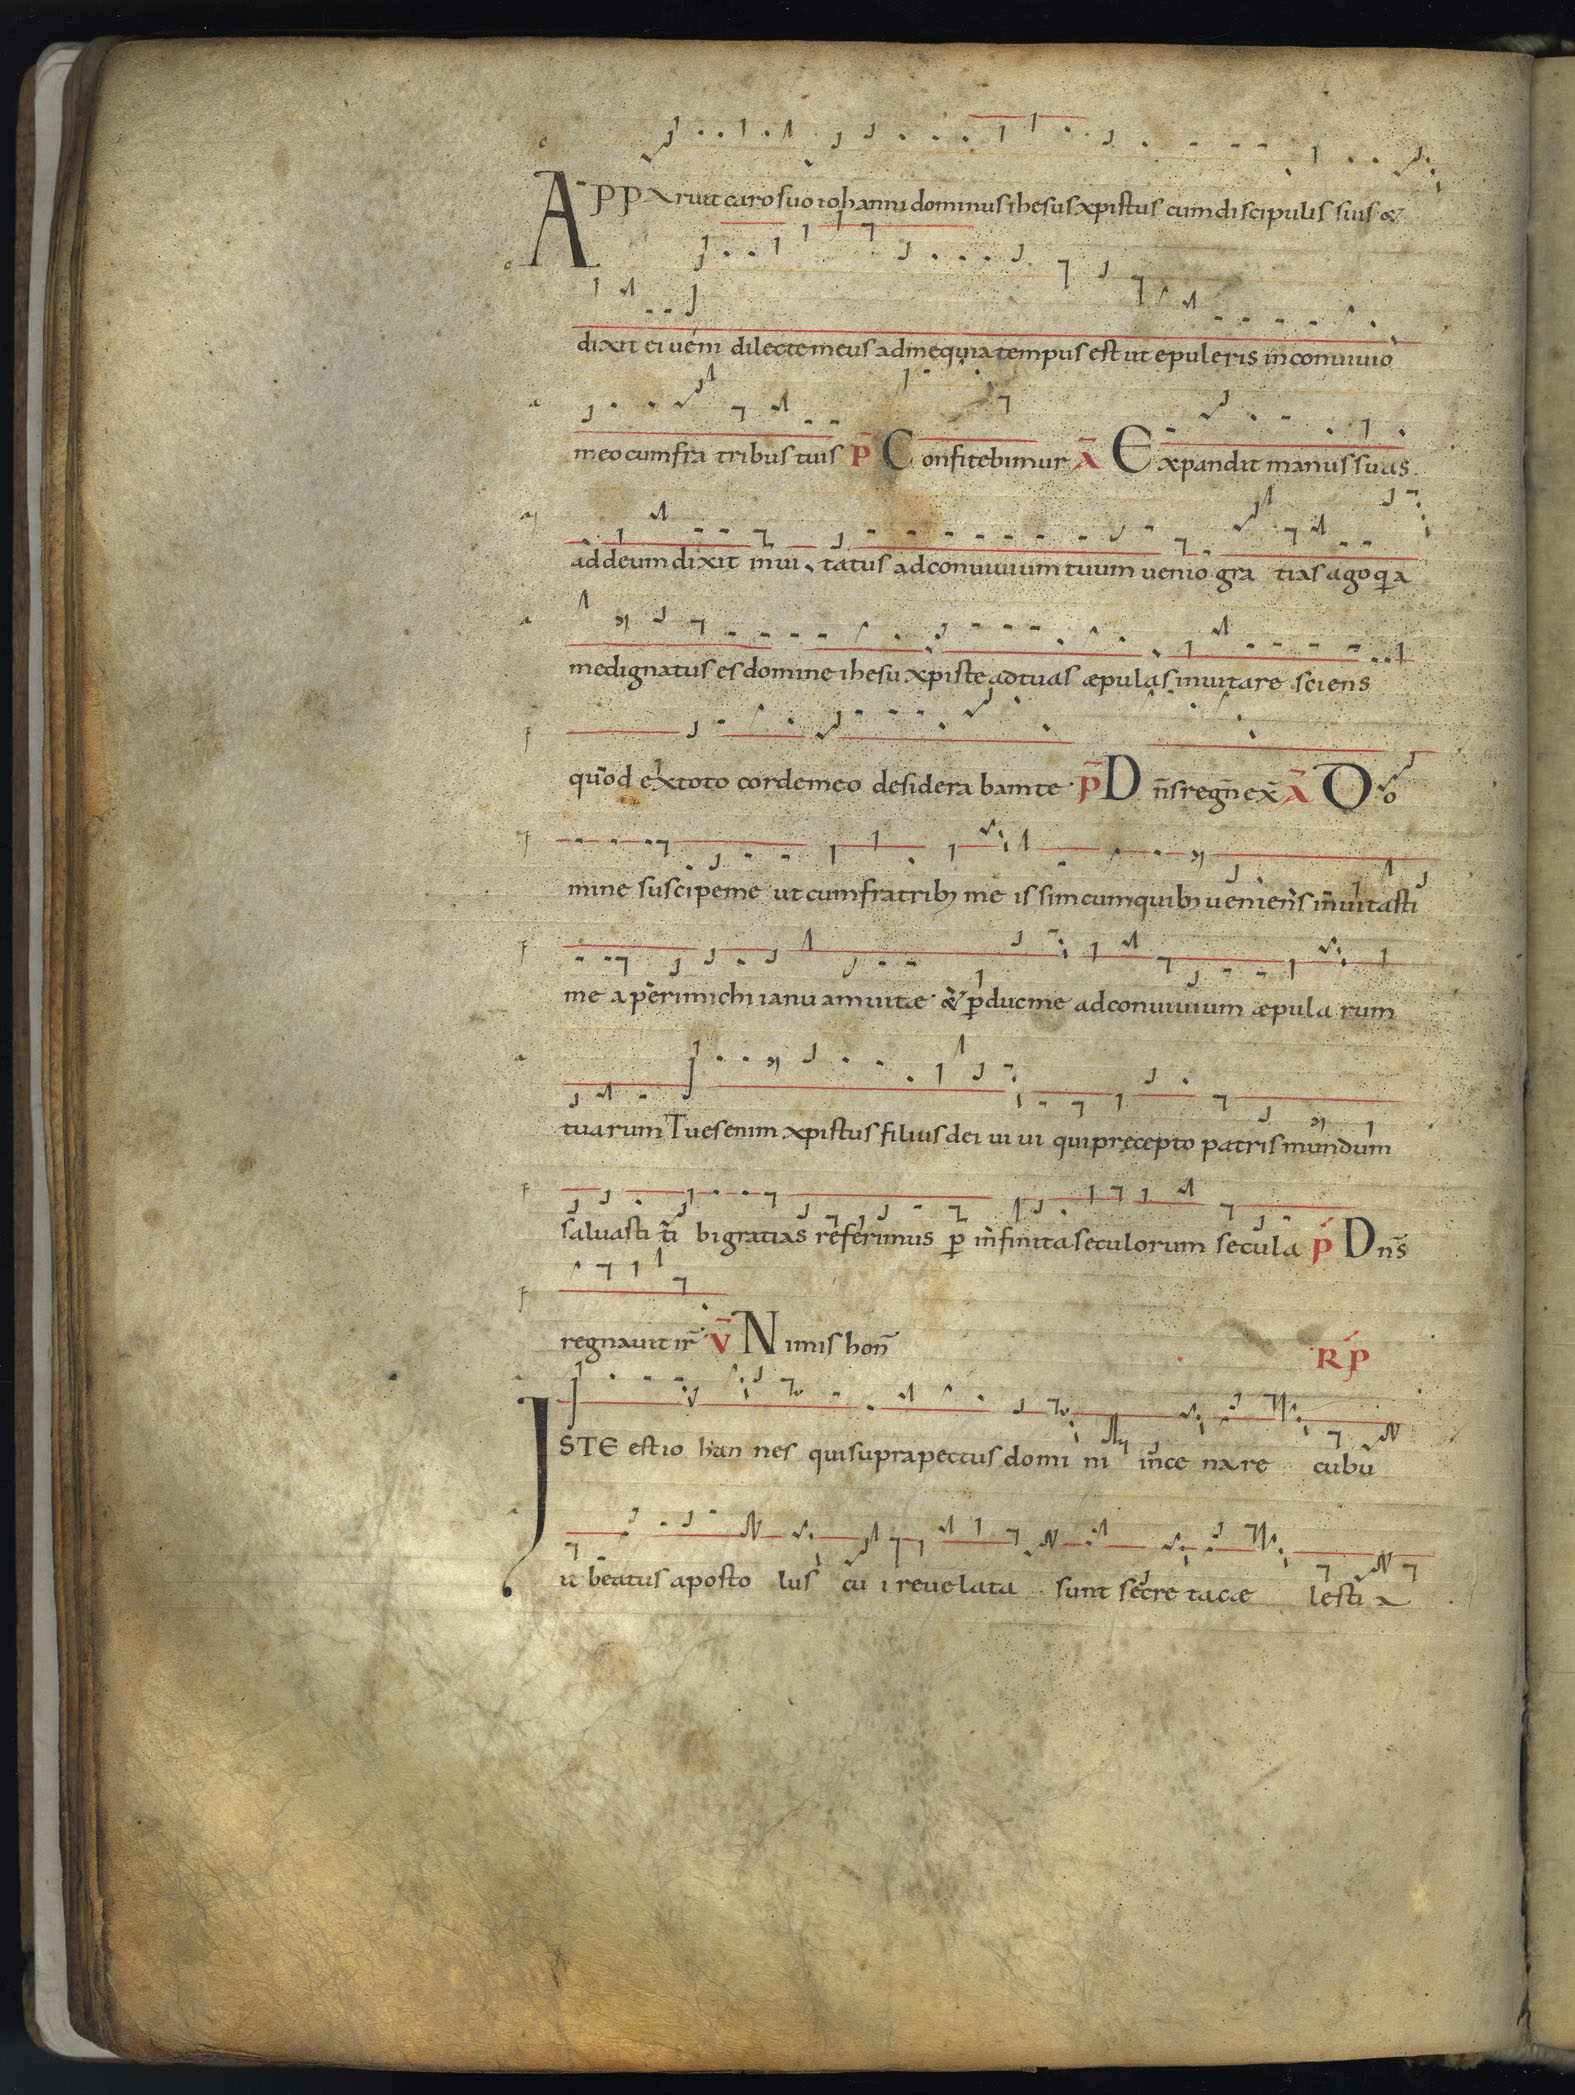 APParuit caro suo iohanni dominus ihesus xpistus cum discipulis suis &
dixit ei ueni dilecte meus ad me quia tempus est ut epuleris in conuiuio
meo cum fratribus tuis p̄ Confitebimur ā Expandit manus suas
ad deum dixit inuitatus ad conuiuium tuum uenio gratias ago qia
me dignatus es domine ihesu xpiste ad tuas æpulas inuitare sciens
quod ex toto corde meo desiderabam te p̄ Dn̄s regn̄ ex̄ ā Do
mine suscipe me ut cum fratrib; meis sim cum quib; ueniens inuitasti
me aperi michi ianuam uitæ & ꝑduc me ad conuiuium æpularum
tuarum Tu es enim xpistus filius dei uiui qui precepto patris mundum
saluasti tibi gratias referimus ꝑ infinita seculorum secula p̄ Dn̄s
regnauit ir̄ v̄ Nimis hon̄
R p
ISTE est iohannes qui supra pectus domini in cena recubu
it beatus apostolus cui reuelata sunt secreta cælestia